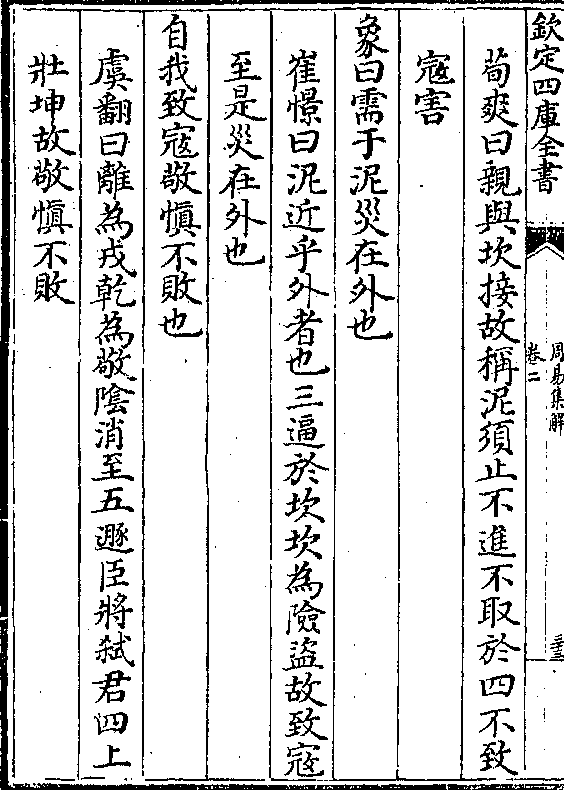 欽定四庫全書
周易集解
卷二
荀爽曰親與坎接故稱泥須止不進不取於四不致
寇害
象曰需于泥災在外也
崔憬曰泥近乎外者也三逼於坎坎為險盜故致寇
至是災在外也
自我致寇敬慎不敗也
虞翻曰離為戎乾為敬陰消至五遯臣將弑君四上
壯坤故敬慎不敗